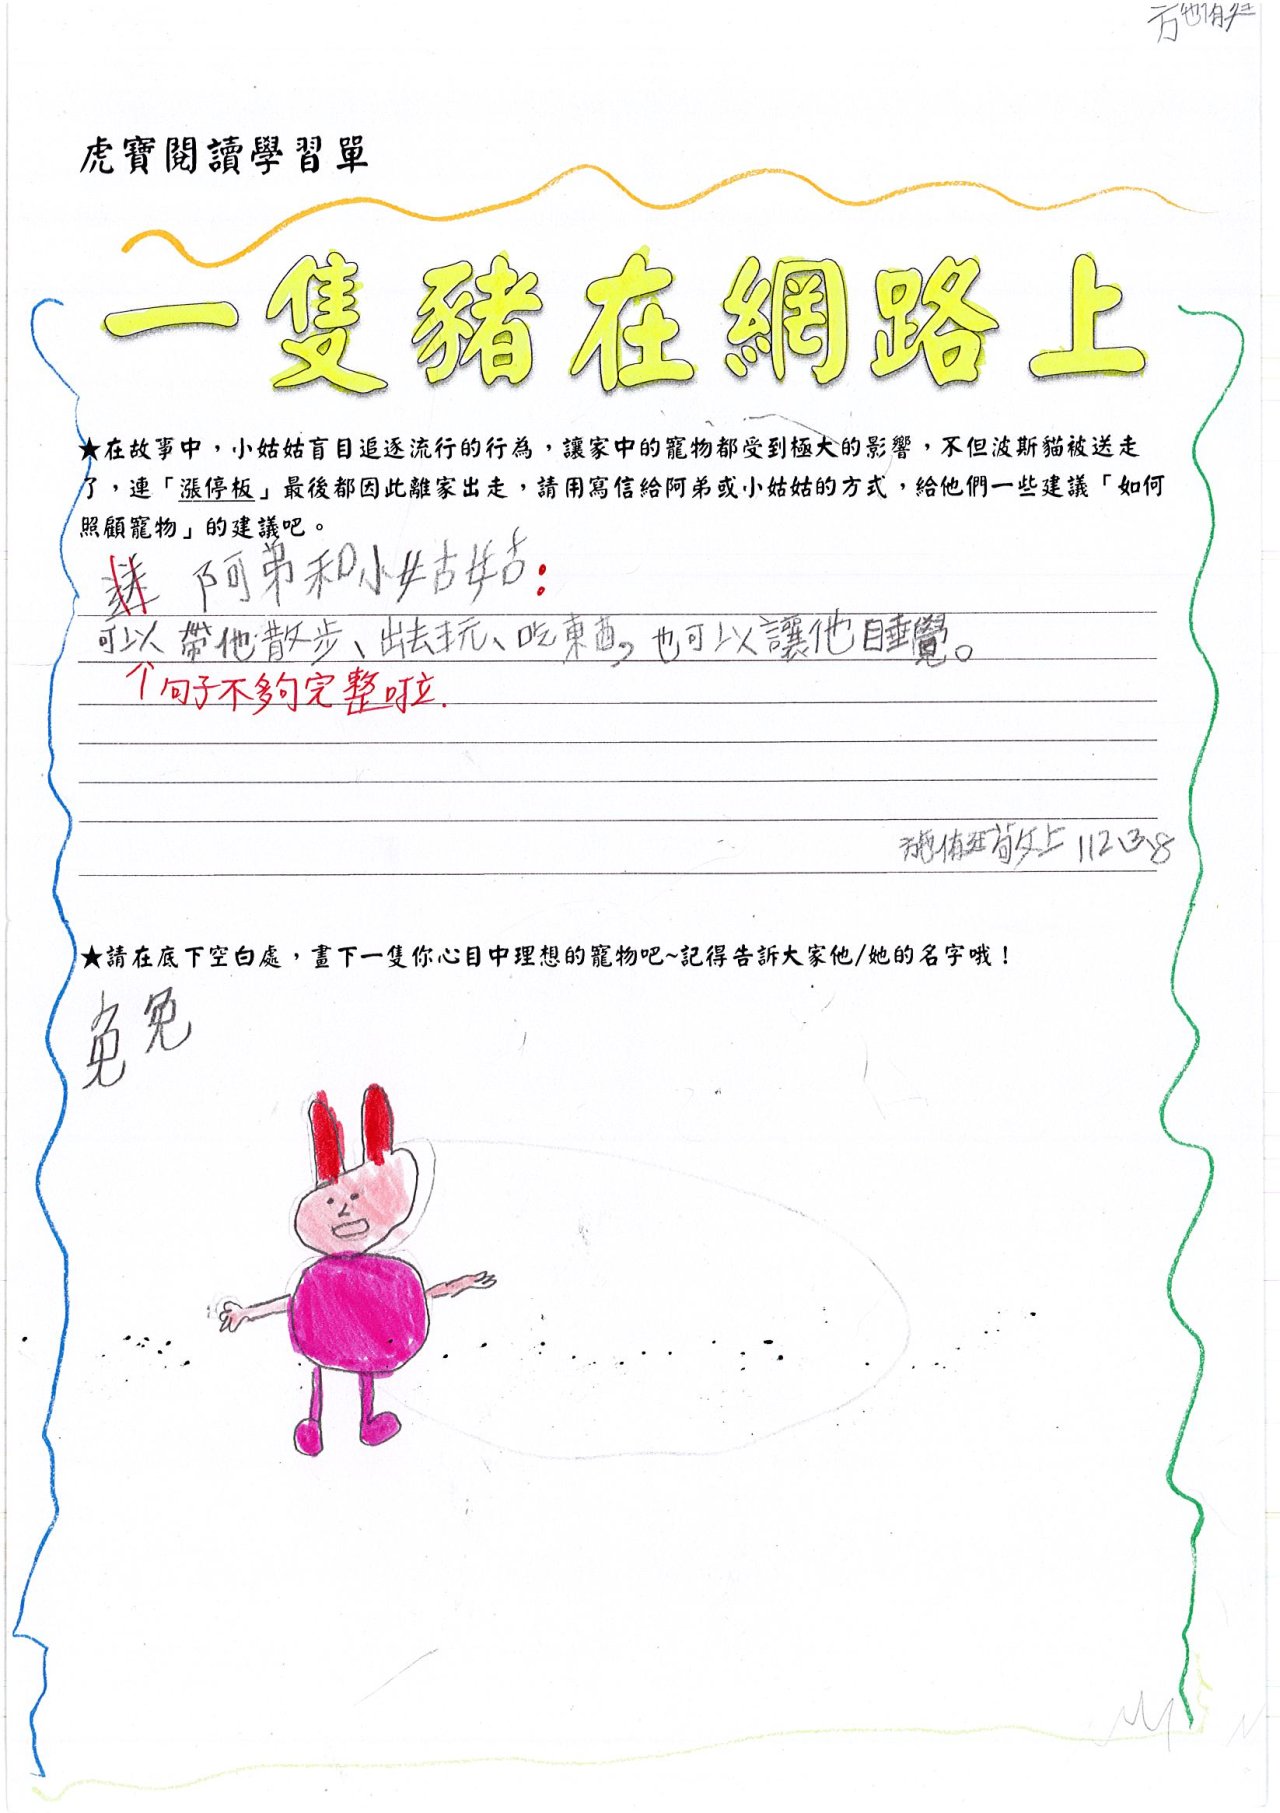 虎寶閱讀學習單
一隻豬在網路上
★在故事中，小姑姑盲目追逐流行的行為，讓家中的寵物都受到極大的影響，不但波斯貓被送走
了，連「漲停板」最後都因此離家出走，請用寫信給阿弟或小姑姑的方式，給他們一些建議「如何
照顧寵物」的建議吧。
阿弟和小姑姑：
可以帶他散步、出去玩、吃東西，也可以讓他睡覺。
↑句子不夠完整啦.
敬上 112、3、8
★請在底下空白處，畫下一隻你心目中理想的寵物吧~記得告訴大家他/她的名字哦！
兔兔